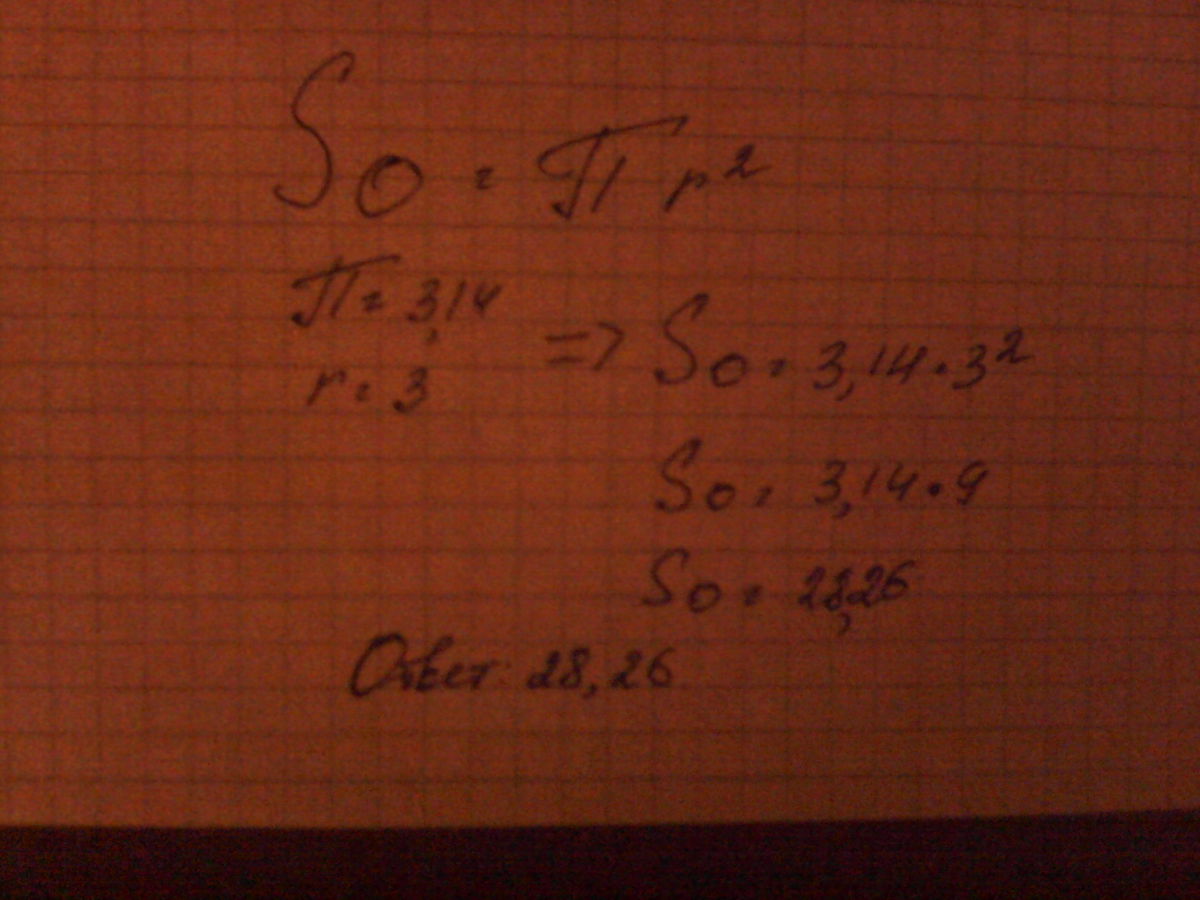 So = π r²
π = 3,14
r = 3
=> So = 3,14 · 3²
So = 3,14 · 9
So = 28,26
Ответ: 28,26